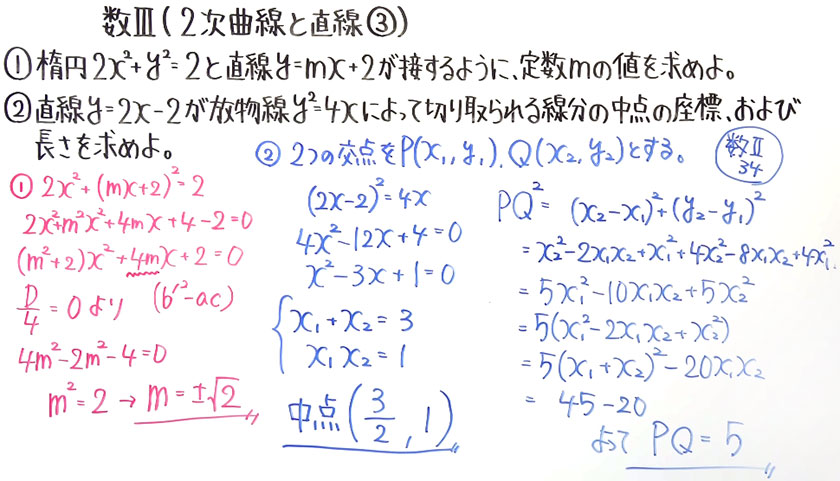 数Ⅲ(2次曲線と直線③)
①楕円2x²+y²=2と直線y=mx+2が接するように、定数mの値を求めよ。
②直線y=2x-2が放物線y²=4xによって切り取られる線分の中点の座標、および
長さを求めよ。
① 2x²+(mx+2)²=2
2x²+m²x²+4mx+4-2=0
(m²+2)x²+4mx+2=0
D/4=0より (b'²-ac)
4m²-2m²-4=0
m²=2→m=±√2
② 2つの交点をP(x₁, y₁), Q(x₂, y₂)とする。
数Ⅱ
34
(2x-2)²=4x
4x²-12x+4=0
x²-3x+1=0
x₁+x₂=3
x₁x₂=1
中点(3/2, 1)
PQ²=(x₂-x₁)²+(y₂-y₁)²
=x₂²-2x₁x₂+x₁²+4x₂²-8x₁x₂+4x₁²
=5x₁²-10x₁x₂+5x₂²
=5(x₁²-2x₁x₂+x₂²)
=5(x₁+x₂)²-20x₁x₂
=45-20
よって PQ=5